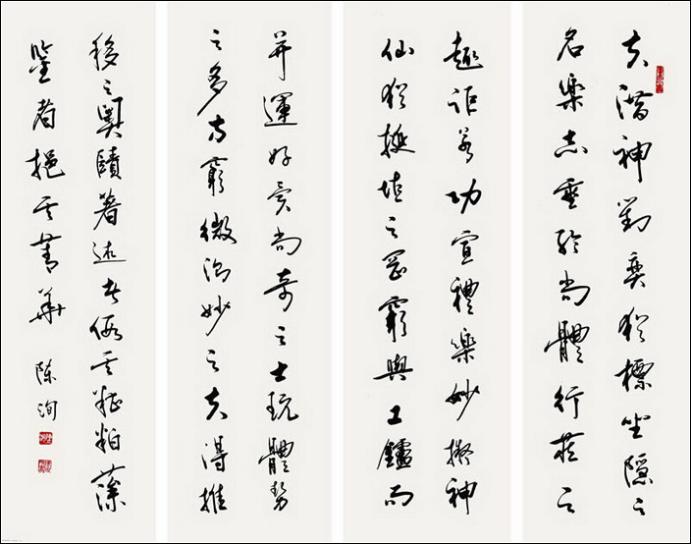 夫潛神對奕猶標坐隱之
名樂志垂綸尚體行藏之
趣詎若功宣禮樂妙擬神
仙猶挻埴之罔窮與工鑪而
并運好異尚奇之士玩體勢
之多方窮微測妙之夫得推
移之奧賾著述者假其糟粕藻
鑒者挹其菁華 陳洵